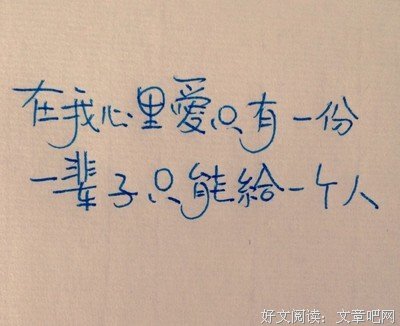 在我心里愛只有一份
一辈子只能給一个人
好文阅读：文章吧网